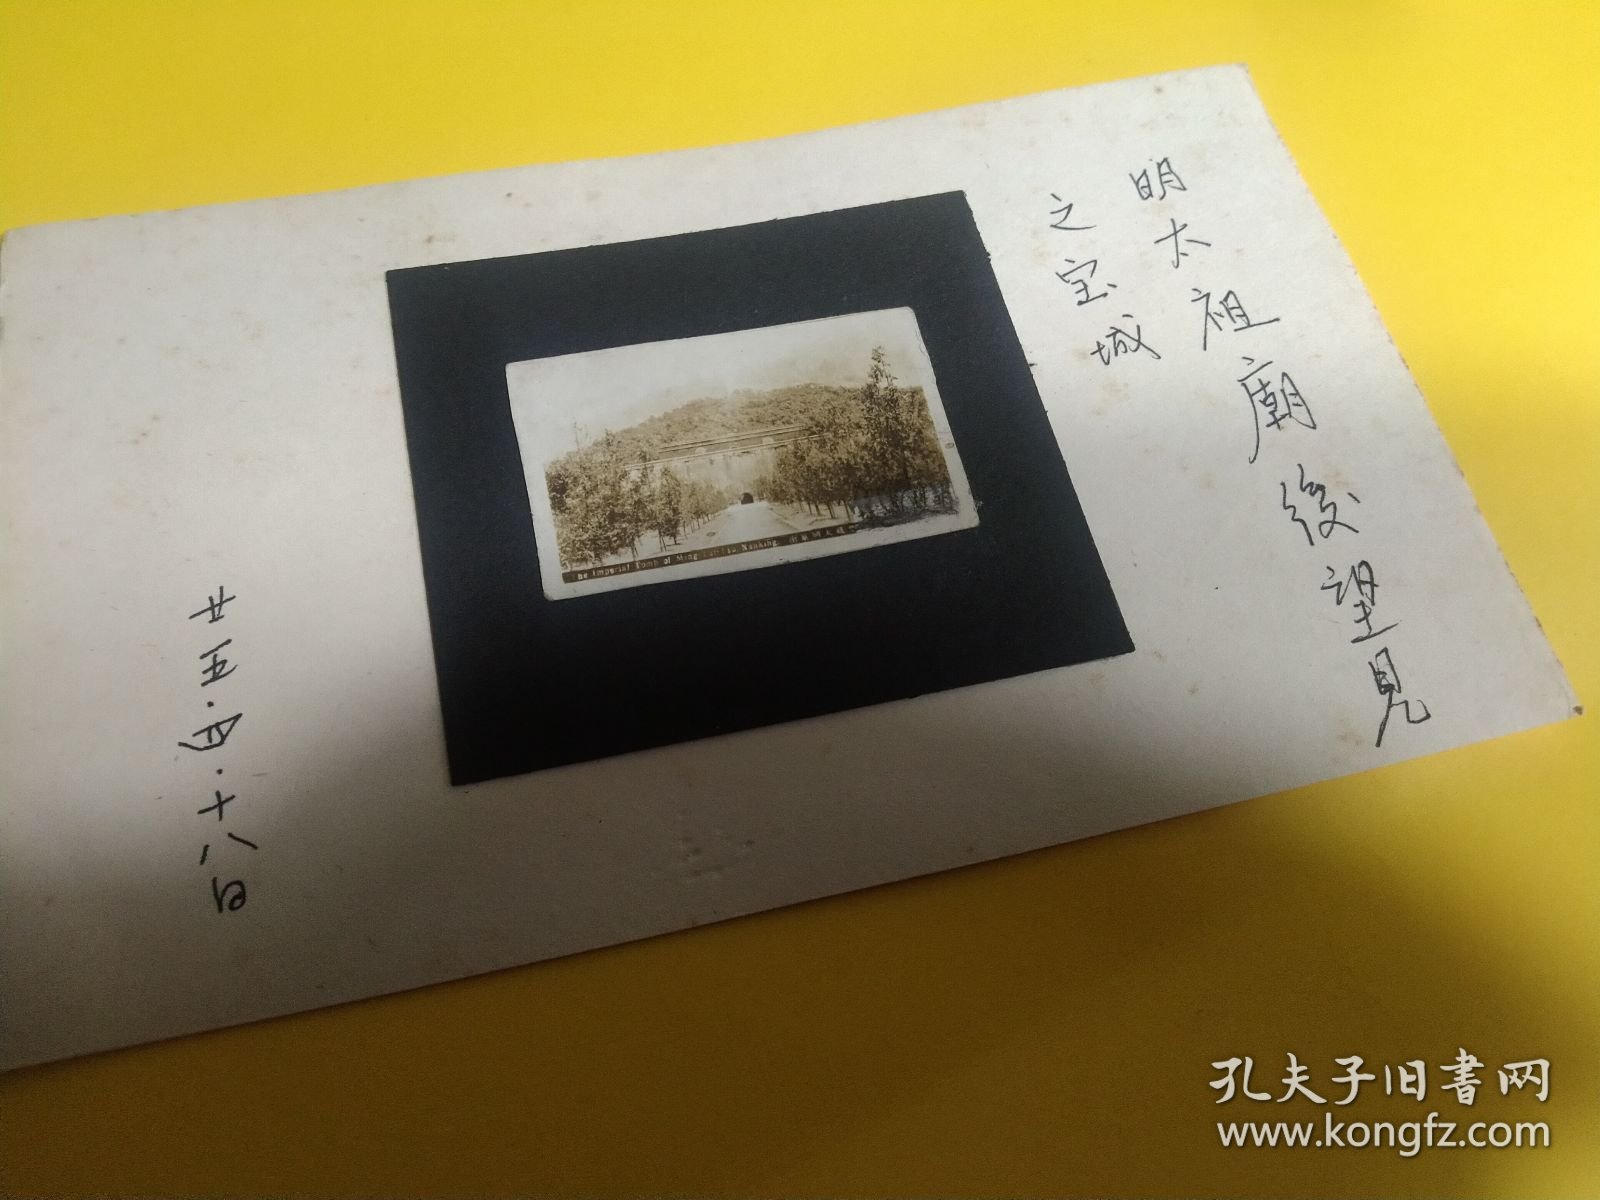 明太祖廟後望見
之宝城
The Imperial Tomb of Ming Nanking.
廿五.四.十八日
孔夫子旧書网
www.kongfz.com